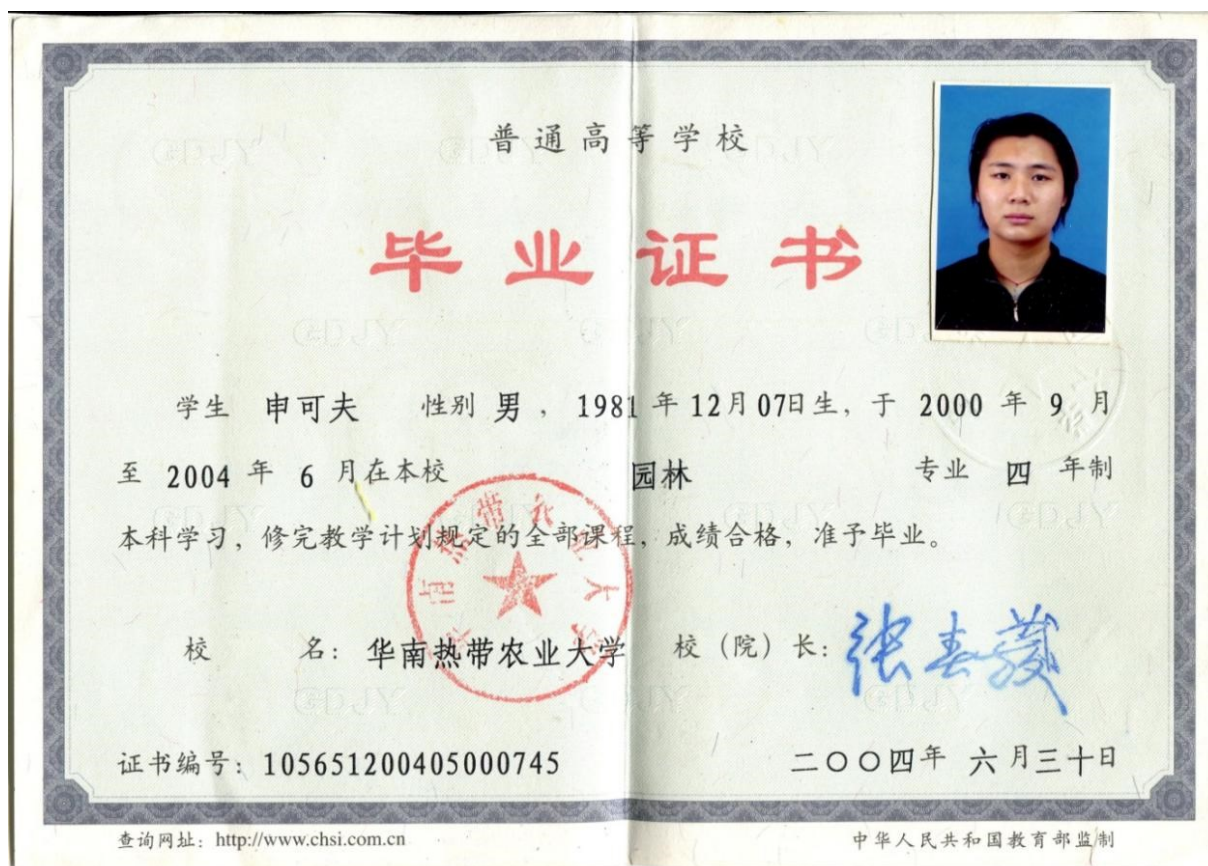 普通高等学校
毕业证书
学生 申可夫 性别 男，1981年12月07日生，于 2000 年 9 月
至 2004 年 6 月在本校 园林 专业 四 年制
本科学习，修完教学计划规定的全部课程，成绩合格，准予毕业。
华南热带农业大学
校 名：华南热带农业大学 校（院）长：
证书编号：105651200405000745 二〇〇四年 六月三十日
查询网址：http://www.chsi.com.cn 中华人民共和国教育部监制